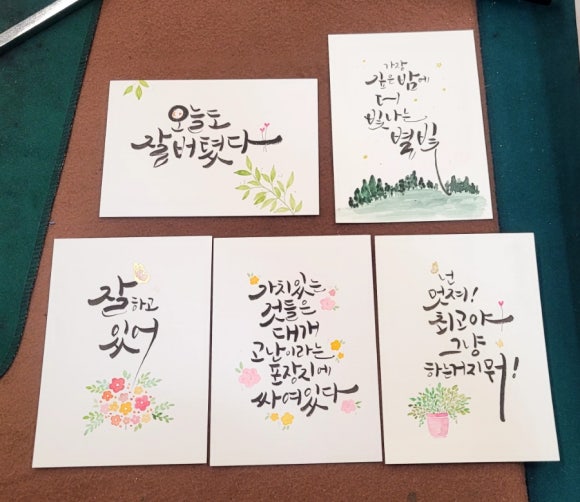 오늘도
잘 버텼다
가장
깊은 밤에
더
빛나는
별빛
잘하고
있어
가치있는
것들은
대개
고난이라는
포장지에
싸여있다
넌
멋져!
최고야
그냥
하는거지 뭐!